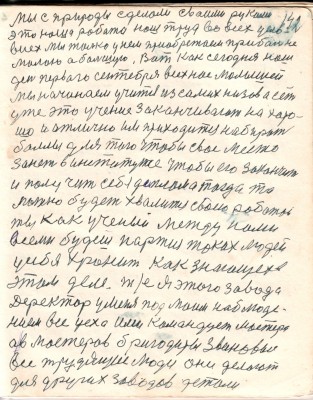 Мы с природы сделали своими руками
это наша работа наш труд во всех
всех мы также у нем приобретаем прибал не
малою а большую, Вот как сегодня наш
ден первого сентебря внехное молышей
мы начинаем учить из самых низов а есть
уже это учение заканчивают на хоро-
шо и отлично им приходитца набырат
баллы для того чтобы свое место
занет в институте чтобы его закончит
и получит себе деплома тогда то
можно будет хвалится своей работой
ты как ученый между нами
всеми будеш партия токах людей
у себя хранит как знающех в
этом деле. т/е я этого завода
Деректор у меня под моим наблюде-
нием все цеха они командует мастера
а в мастеров бригадиры звановые
все трудящие люди они делают
для других заводов детали